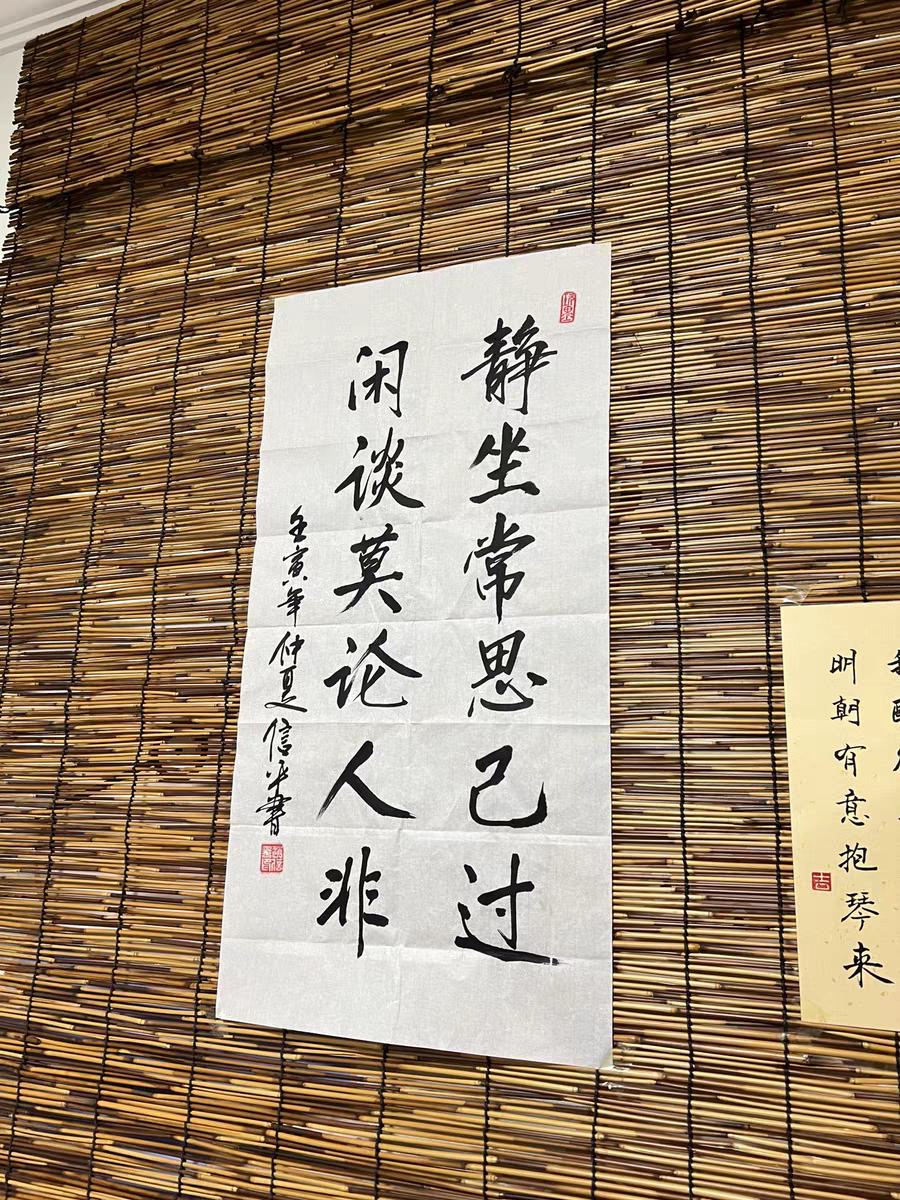 静坐常思己过
闲谈莫论人非
壬寅年仲夏信平书
明朝有意抱琴来